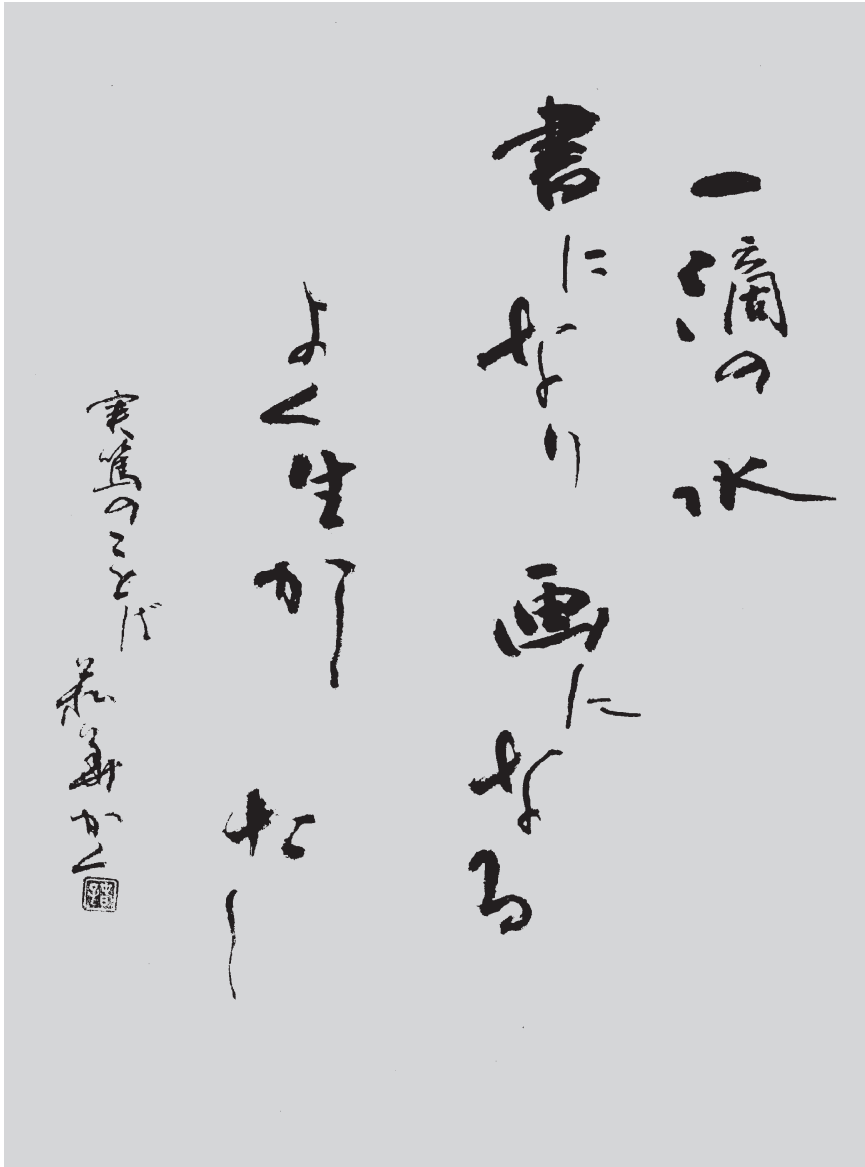 一滴の水
書になり 画になる
よく生かし たし
実篤のことば
かく